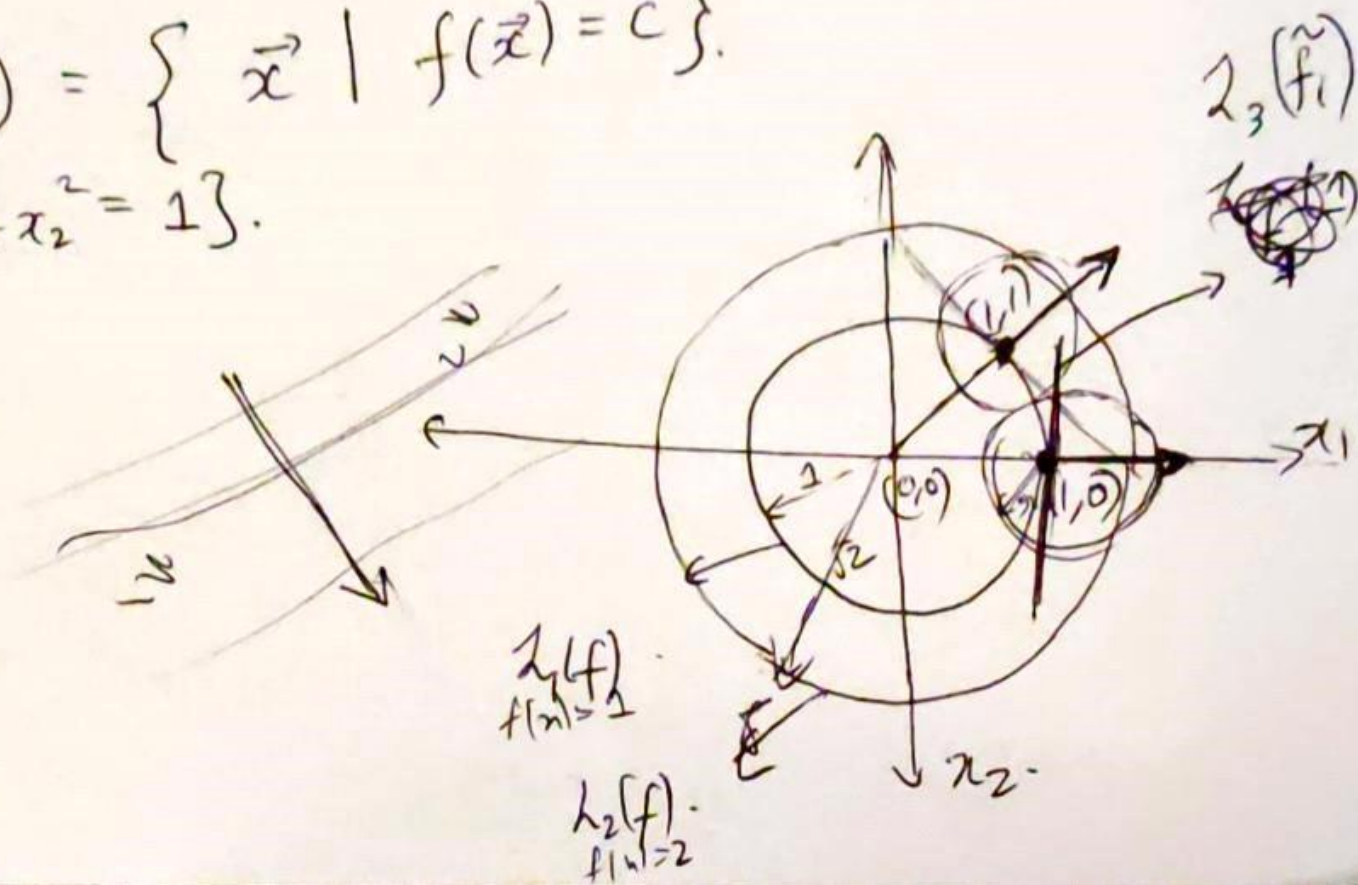 ) = { x⃗ | f(x⃗) = C }.
x₂² = 1}.
L₃(f̃₁)
(1,1)
x₁
1
(0,0)
(1,0)
√2
L₁(f)
f(x)=1
x₂
L₂(f)
f(x)=2